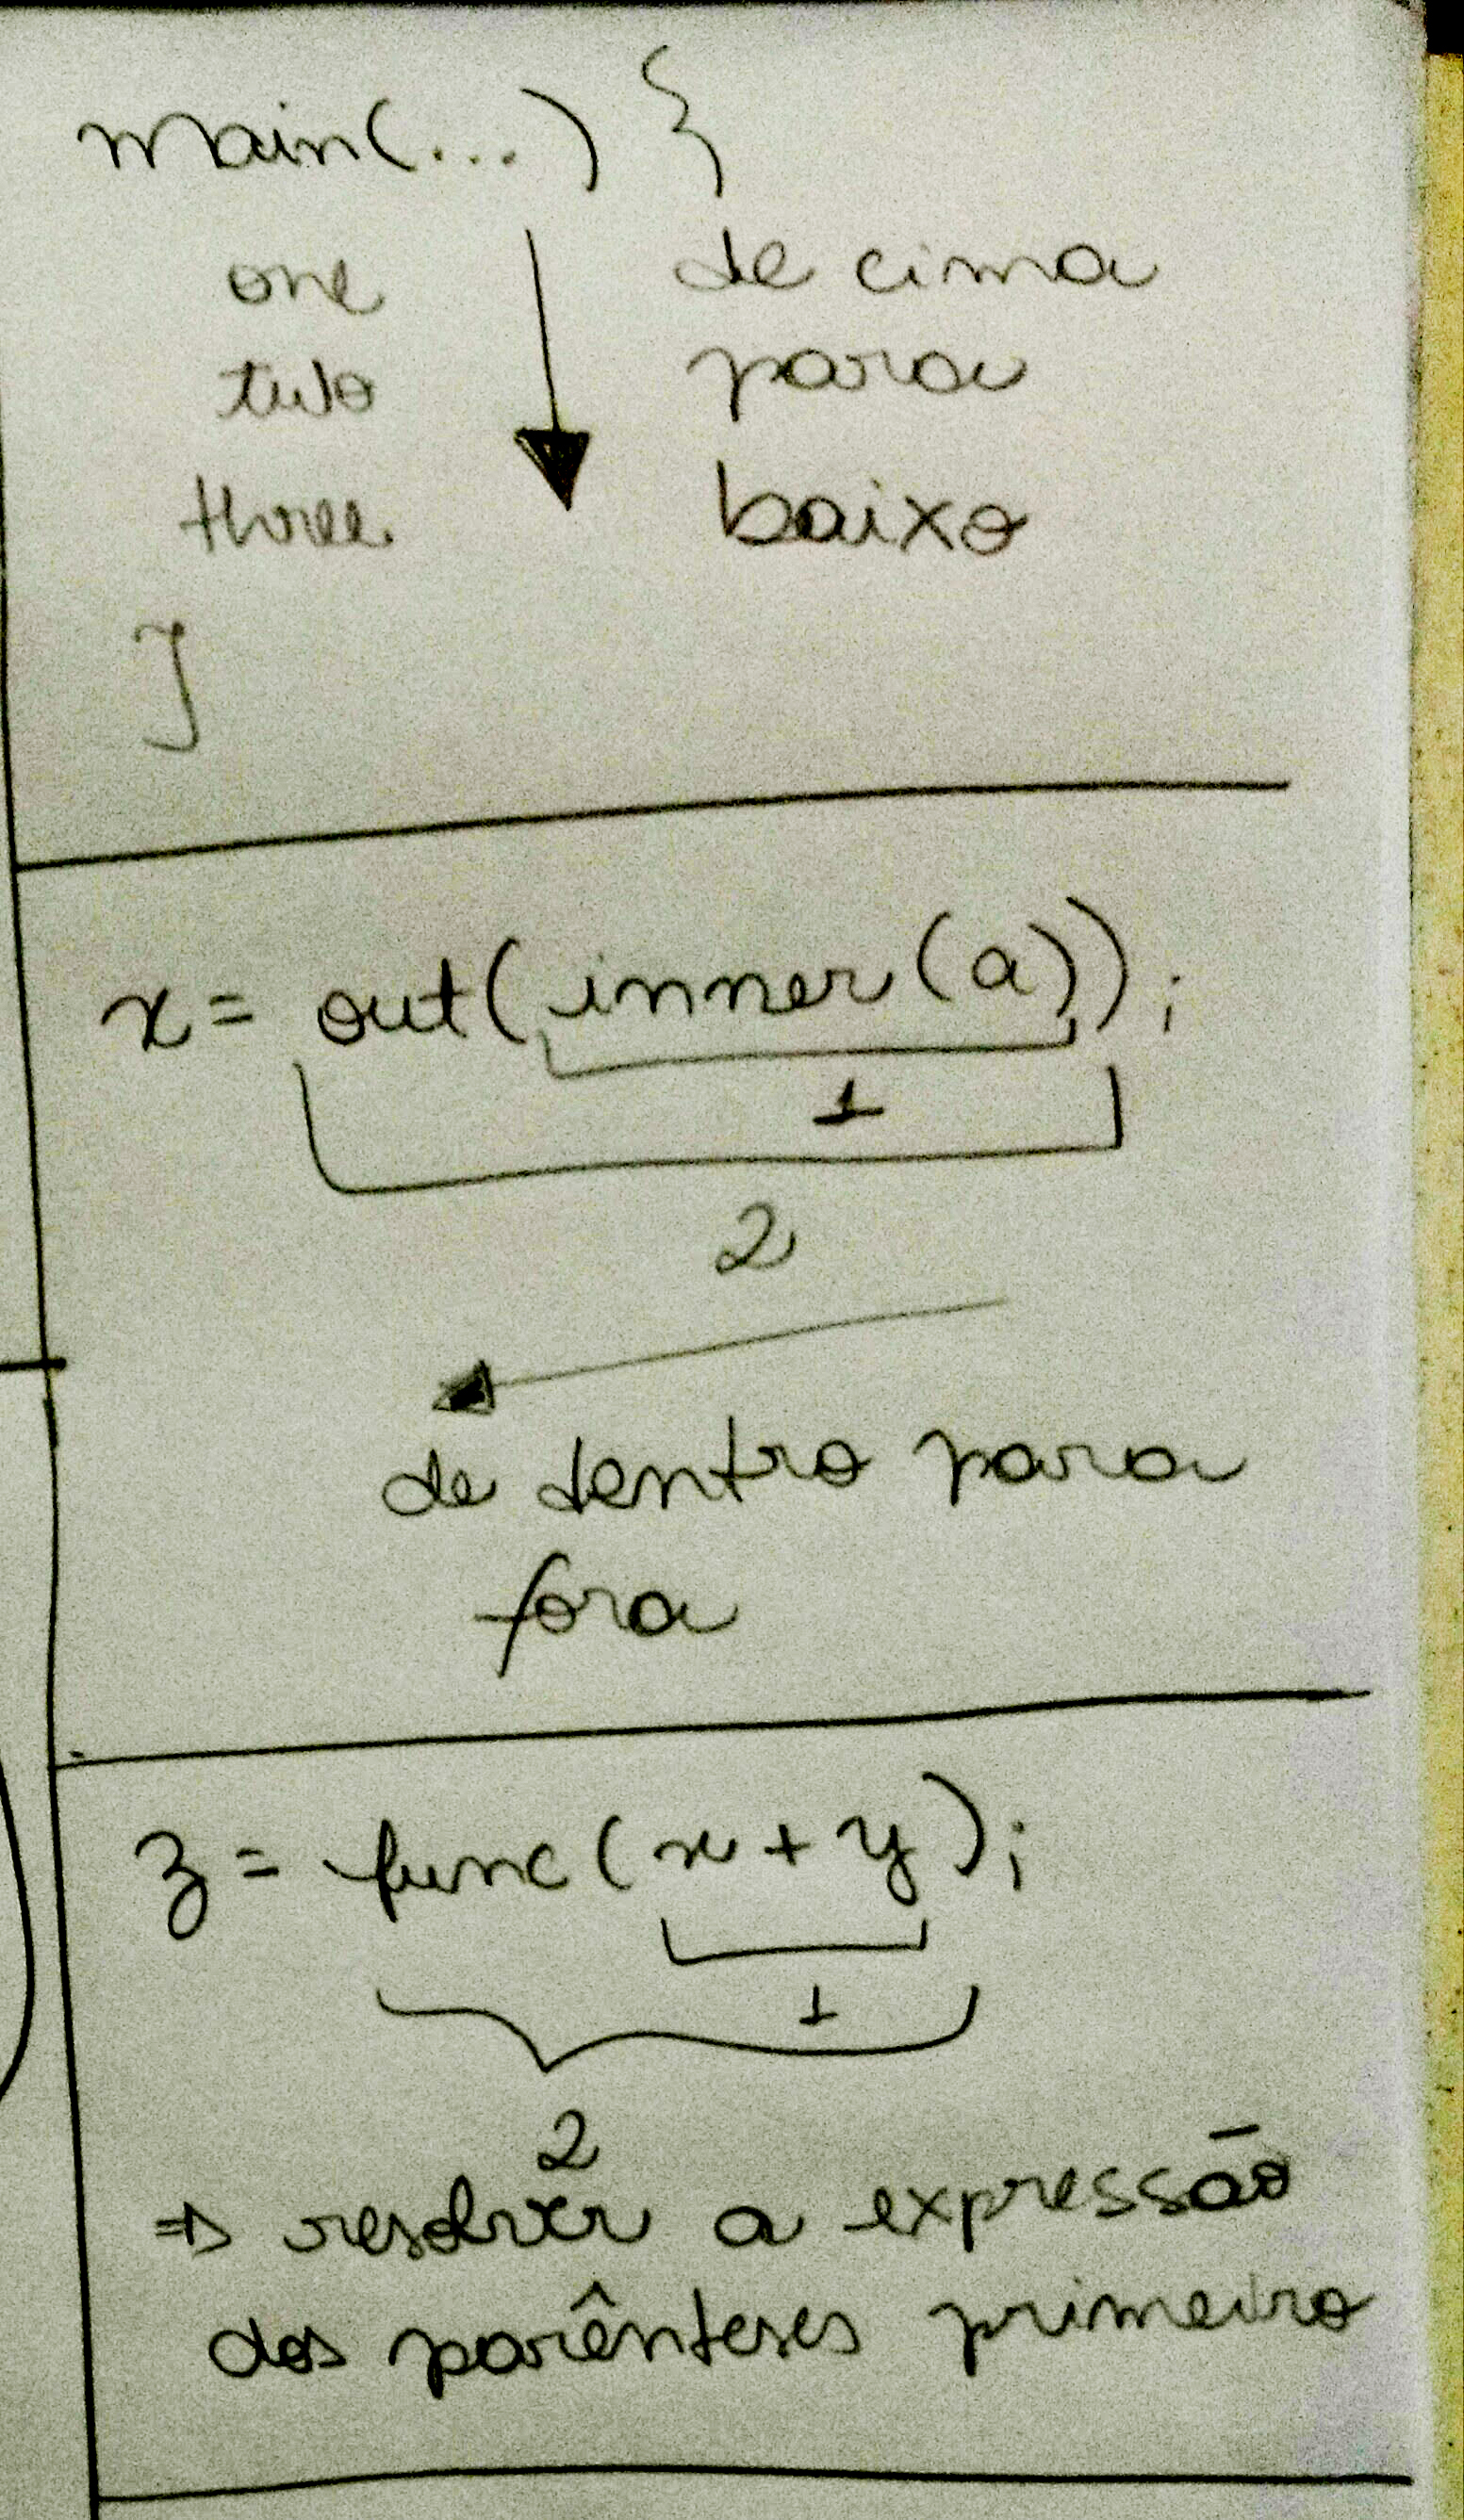 main(...) {
one de cima
two para
three baixo
}
x = out(inner(a));
1
2
de dentro para
fora
z = func(x + y);
1
2
⇒ resolver a expressão
dos parênteses primeiro